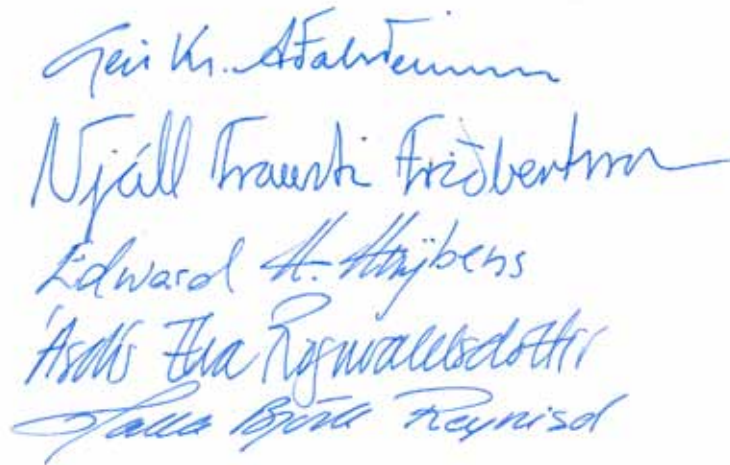 Geir Kr. Aðalsteinsson
Njáll Trausti Friðbertsson
Edward H. Huijbens
Ásdís Elva Rögnvaldsdóttir
Halla Björk Reynisd